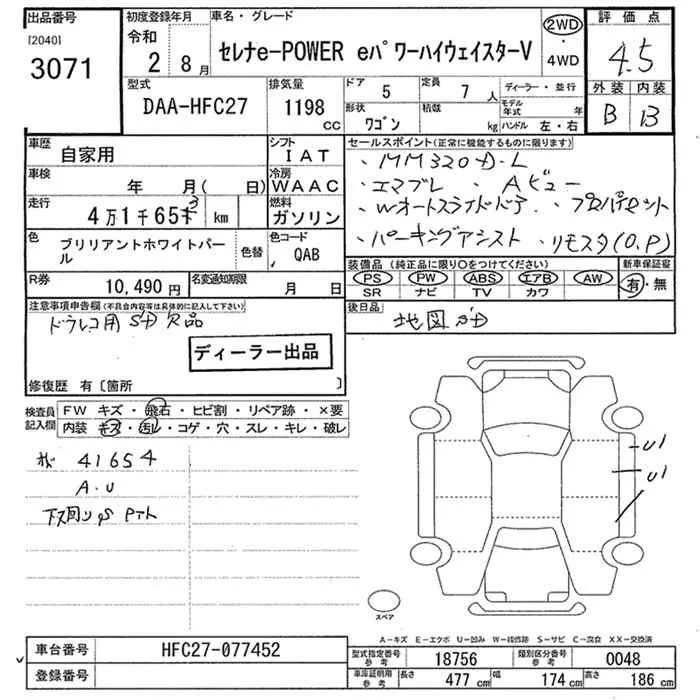 出品番号 初度登録年月 車名・グレード 2WD 評価点
[2040] 令和 ・ 4.5
3071 2 8月 セレナe-POWER eパワーハイウェイスターV 4WD
型式 排気量 ドア 5 定員 7人 ディーラー・並行 外装 内装
DAA-HFC27 1198 CC 形状 ワゴン 積載 kg モデル年式 年 B B
ハンドル 左・右
車歴 自家用 シフト IAT セールスポイント(正常に機能するものに限ります)
車検 年 月( 日) 冷房 WAAC ・MM320D-L
走行 4万1千65千 km 燃料 ガソリン ・エマブレ ・Aビュー
・Wオートスライドドア・プロパイロット
色 ブリリアントホワイトパール 色替 色コード QAB ・パーキングアシスト・リモスタ(O.P)
R券 10,490円 名変通知期限 月 日 装備品(純正品に限り○をつけてください) 新車保証書
PS PW ABS エアB AW 有・無
SR ナビ TV カワ
注意事項申告欄(不具合内容等は具体的に記入して下さい) 後日品
ドラレコ用SD欠品 地図SD
ディーラー出品
修復歴 有〔箇所 〕
検査員記入欄 FW キズ・飛石・ヒビ割・リペア跡・×要
内装 キズ・汚レ・コゲ・穴・スレ・キレ・破レ
41654
A.U
下回りPS Pマト
U1
U1
スペア
A-キズ E-エクボ U-凹み W-補修跡 S-サビ C-腐食 XX-交換済
車台番号 HFC27-077452 型式指定番号 参考 18756 類別区分番号 参考 0048
登録番号 車庫証明用 参考 長さ 477 cm 幅 174 cm 高さ 186 cm